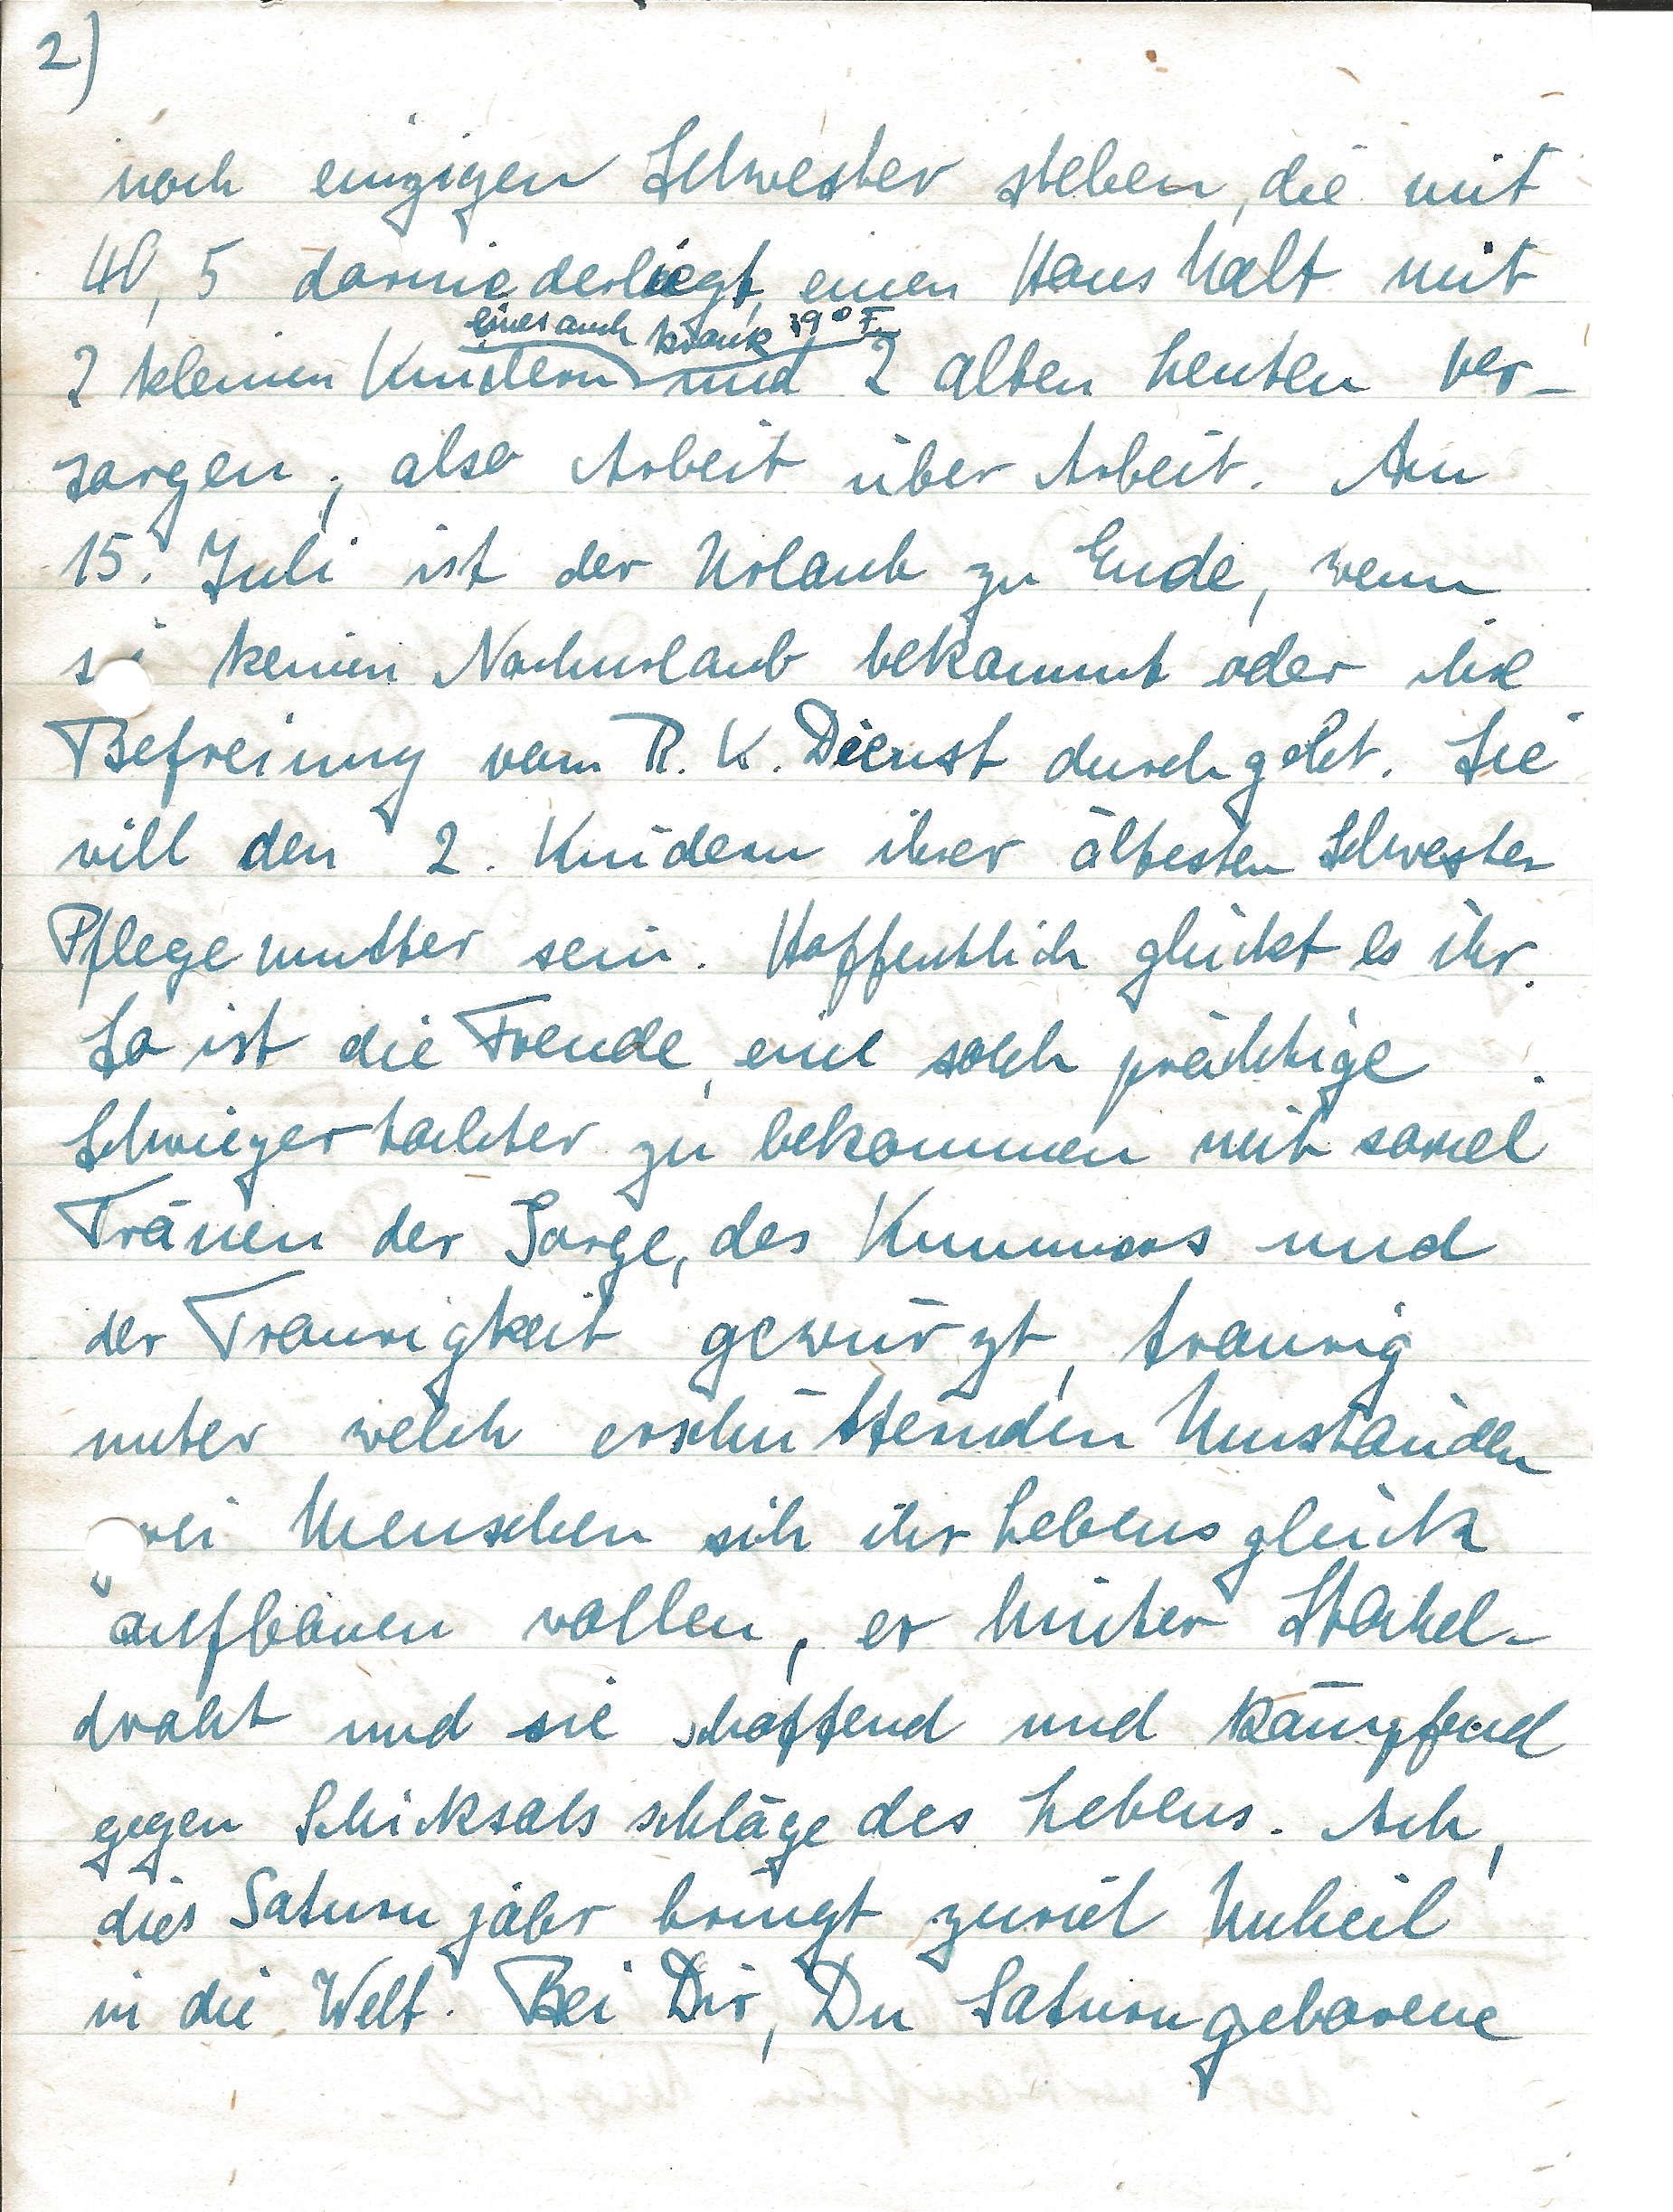 2)
noch einzigen Schwester stehen, die mit
40,5 darniederliegt, einen Haushalt mit
eines auch krank 39° F.
2 kleinen Kindern und 2 alten Leuten ver-
sorgen, also Arbeit über Arbeit. Am
15. Juli ist der Urlaub zu Ende, wenn
si keinen Nachurlaub bekommt oder ihre
Befreiung vom R. K. Dienst durchgeht. Sie
will den 2. Kindern ihrer ältesten Schwester
Pflegemutter sein. Hoffentlich glückt es ihr.
So ist die Freude, eine solch prächtige
Schwiegertochter zu bekommen mit soviel
Tränen der Sorge, des Kummers und
der Traurigkeit gewürzt, traurig
unter welch erschütternden Umständen
wei Menschen sich ihr Lebensglück
aufbauen wollen, er hinter Stachel-
draht und sie schaffend und kämpfend
gegen Schicksalsschläge des Lebens. Ach,
dies Saturnjahr bringt zuviel Unheil
in die Welt. Bei Dir, Du Saturngeborene